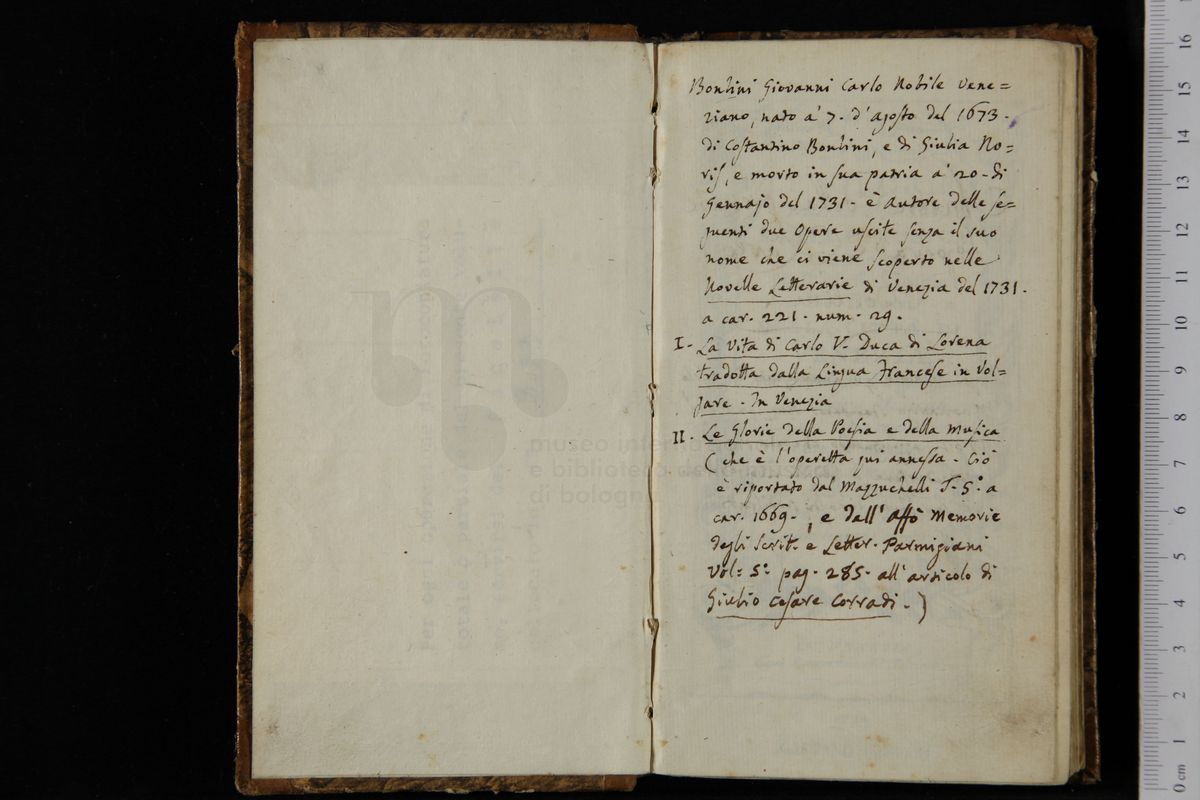 Bonlini Giovanni Carlo Nobile Vene=
ziano, nato a' 7. d'agosto del 1673.
di Costantino Bonlini, e di Giulia No=
ris, e morto in sua patria a' 20. di
Gennajo del 1731. è Autore delle se=
guenti due Opere uscite senza il suo
nome che ci viene scoperto nelle
Novelle Letterarie di Venezia del 1731.
a car. 221. num. 29.
I. La Vita di Carlo V. Duca di Lorena
tradotta dalla Lingua Francese in Vol=
gare. In Venezia
II. Le Glorie della Poesia e della Musica
(che è l'operetta qui annessa. Ciò
è riportato dal Mazzuchelli T. 5.° a
car. 1669., e dall'Affò Memorie
degli Scrit. e Letter. Parmigiani
Vol: 5.° pag. 285. all'articolo di
Giulio Cesare Corradi.)
museo inter
e biblioteca della musica
di bologna
0 cm 1 2 3 4 5 6 7 8 9 10 11 12 13 14 15 16